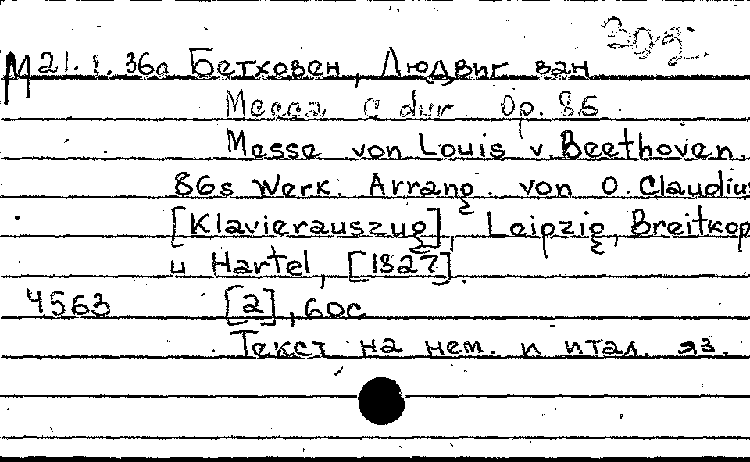 309.
М 21.1.36а Бетховен, Людвиг ван
Месса C dur Op. 86
Messe von Louis v. Beethoven.
86s Werk. Arrang. von O. Claudius
[Klavierauszug], Leipzig, Breitkop
u Hartel, [1827].
4563 [2], 60с
Текст на нем. и итал. яз.